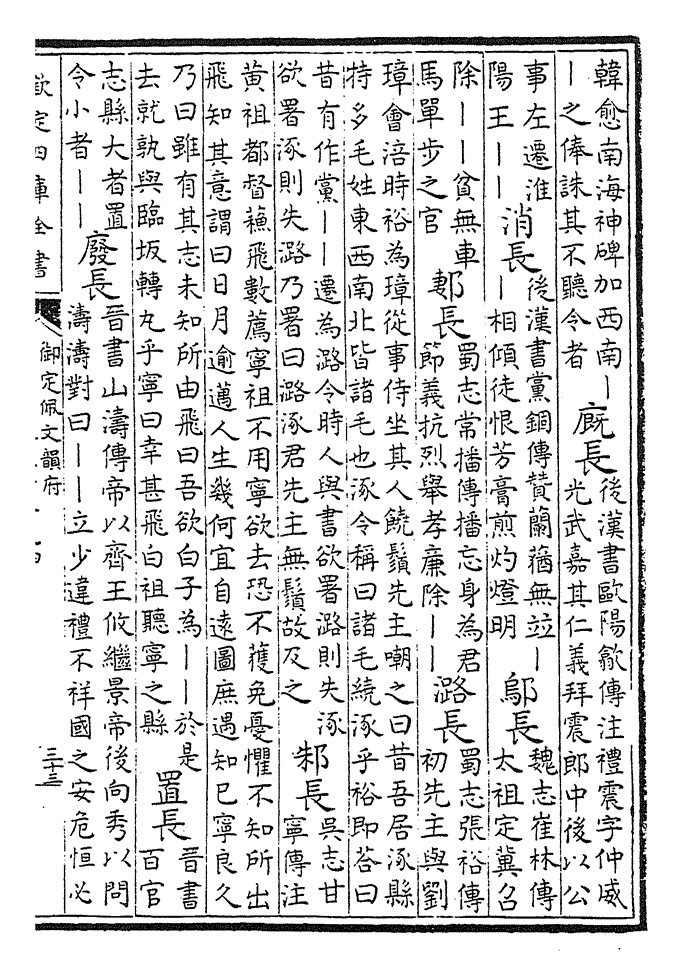 韓愈南海神碑加西南一
一之俸誅其不聽令者
廐長
後漢書歐陽歙傳注禮震字仲威
光武嘉其仁義拜震郎中後以公
事左遷淮
陽王一一
消長
後漢書黨錮傳贊蘭蕕無竝一
一相傾徒恨芳膏煎灼燈明
鄔長
魏志崔林傳
太祖定冀召
除一一貧無車
馬單步之官
郪長
蜀志常播傳播忘身為君
節義抗烈舉孝廉除一一
潞長
蜀志張裕傳
初先主與劉
璋會涪時裕為璋從事侍坐其人饒鬚先主嘲之曰昔吾居涿縣
特多毛姓東西南北皆諸毛也涿令稱曰諸毛繞涿乎裕即荅曰
昔有作黨一一遷為潞令時人與書欲署潞則失涿
欲署涿則失潞乃署曰潞涿君先主無鬚故及之
邾長
吳志甘
寧傳注
黃祖都督蘓飛數薦寧祖不用寧欲去恐不獲免憂懼不知所出
飛知其意謂曰日月逾邁人生幾何宜自遠圖庶遇知已寧良久
乃曰雖有其志未知所由飛曰吾欲白子為一一於是
去就孰與臨坂轉丸乎寧曰幸甚飛白祖聽寧之縣
置長
晉書
百官
志縣大者置
令小者一一
廢長
晉書山濤傳帝以齊王攸繼景帝後向秀以問
濤濤對曰一一立少違禮不祥國之安危恒必
欽定四庫全書
御定佩文韻府
三十三